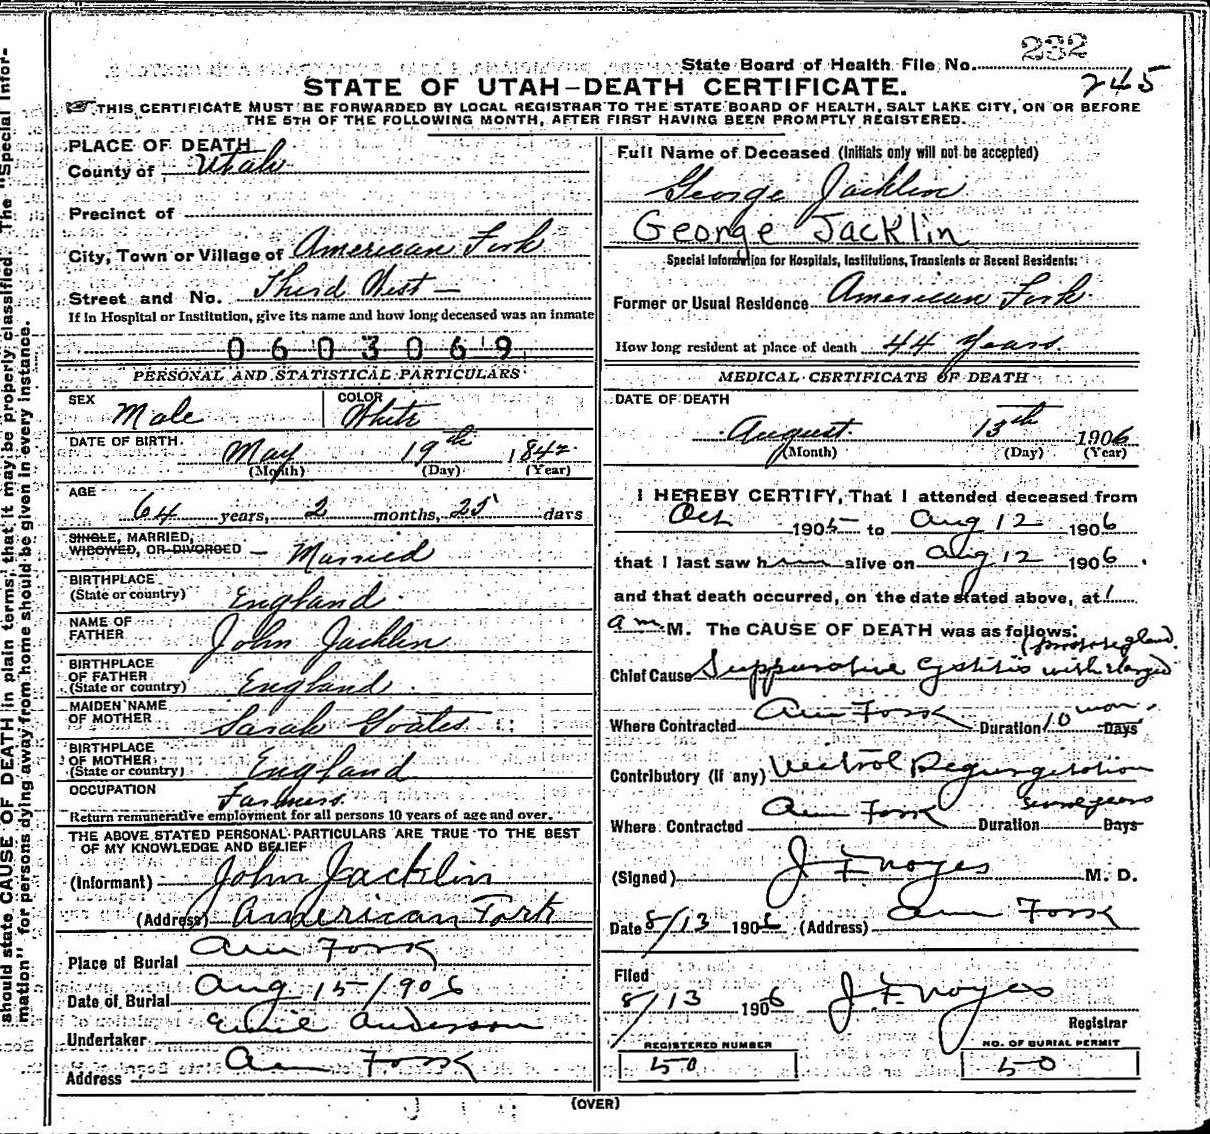 232
State Board of Health File No.
245
STATE OF UTAH-DEATH CERTIFICATE.
THIS CERTIFICATE MUST BE FORWARDED BY LOCAL REGISTRAR TO THE STATE BOARD OF HEALTH, SALT LAKE CITY, ON OR BEFORE
THE 5TH OF THE FOLLOWING MONTH, AFTER FIRST HAVING BEEN PROMPTLY REGISTERED.
PLACE OF DEATH
County of Utah
Precinct of
City, Town or Village of American Fork
Street and No. Third West —
If in Hospital or Institution, give its name and how long deceased was an inmate
0603069
PERSONAL AND STATISTICAL PARTICULARS
SEX Male COLOR White
DATE OF BIRTH. May 19th 1842
(Month) (Day) (Year)
AGE
64 years, 2 months, 25 days
SINGLE, MARRIED,
WIDOWED, OR DIVORCED — Married
BIRTHPLACE
(State or country) England
NAME OF
FATHER John Jacklin
BIRTHPLACE
OF FATHER
(State or country) England
MAIDEN NAME
OF MOTHER Sarah Goates
BIRTHPLACE
OF MOTHER
(State or country) England
OCCUPATION Farmer
Return remunerative employment for all persons 10 years of age and over.
THE ABOVE STATED PERSONAL PARTICULARS ARE TRUE TO THE BEST
OF MY KNOWLEDGE AND BELIEF
(Informant) John Jacklin
(Address) American Fork
Place of Burial Am Fork
Date of Burial Aug 15/1906
Undertaker Anderson
Address Am Fork
Full Name of Deceased (Initials only will not be accepted)
George Jacklin
George Jacklin
Special Information for Hospitals, Institutions, Transients or Recent Residents:
Former or Usual Residence American Fork
How long resident at place of death 44 Years.
MEDICAL CERTIFICATE OF DEATH
DATE OF DEATH
August 13th 1906
(Month) (Day) (Year)
I HEREBY CERTIFY, That I attended deceased from
Oct 1905 to Aug 12 1906
that I last saw him alive on Aug 12 1906.
and that death occurred, on the date stated above, at 1
am M. The CAUSE OF DEATH was as follows:
gland.
Chief Cause Suppurative Cystitis with enlarged
Where Contracted Am Fork Duration 10 mon. Days
Contributory (if any) Regurgitation
Where Contracted Am Fork Duration several years Days
(Signed) J F Noyes M. D.
Date 8/13 1906 (Address) Am Fork
Filed
8/13 1906 J F Noyes
Registrar
REGISTERED NUMBER NO. OF BURIAL PERMIT
50 50
(OVER)
should state CAUSE OF DEATH in plain terms, that it may be properly classified. The "Special Infor-
mation" for persons dying away from home should be given in every instance.